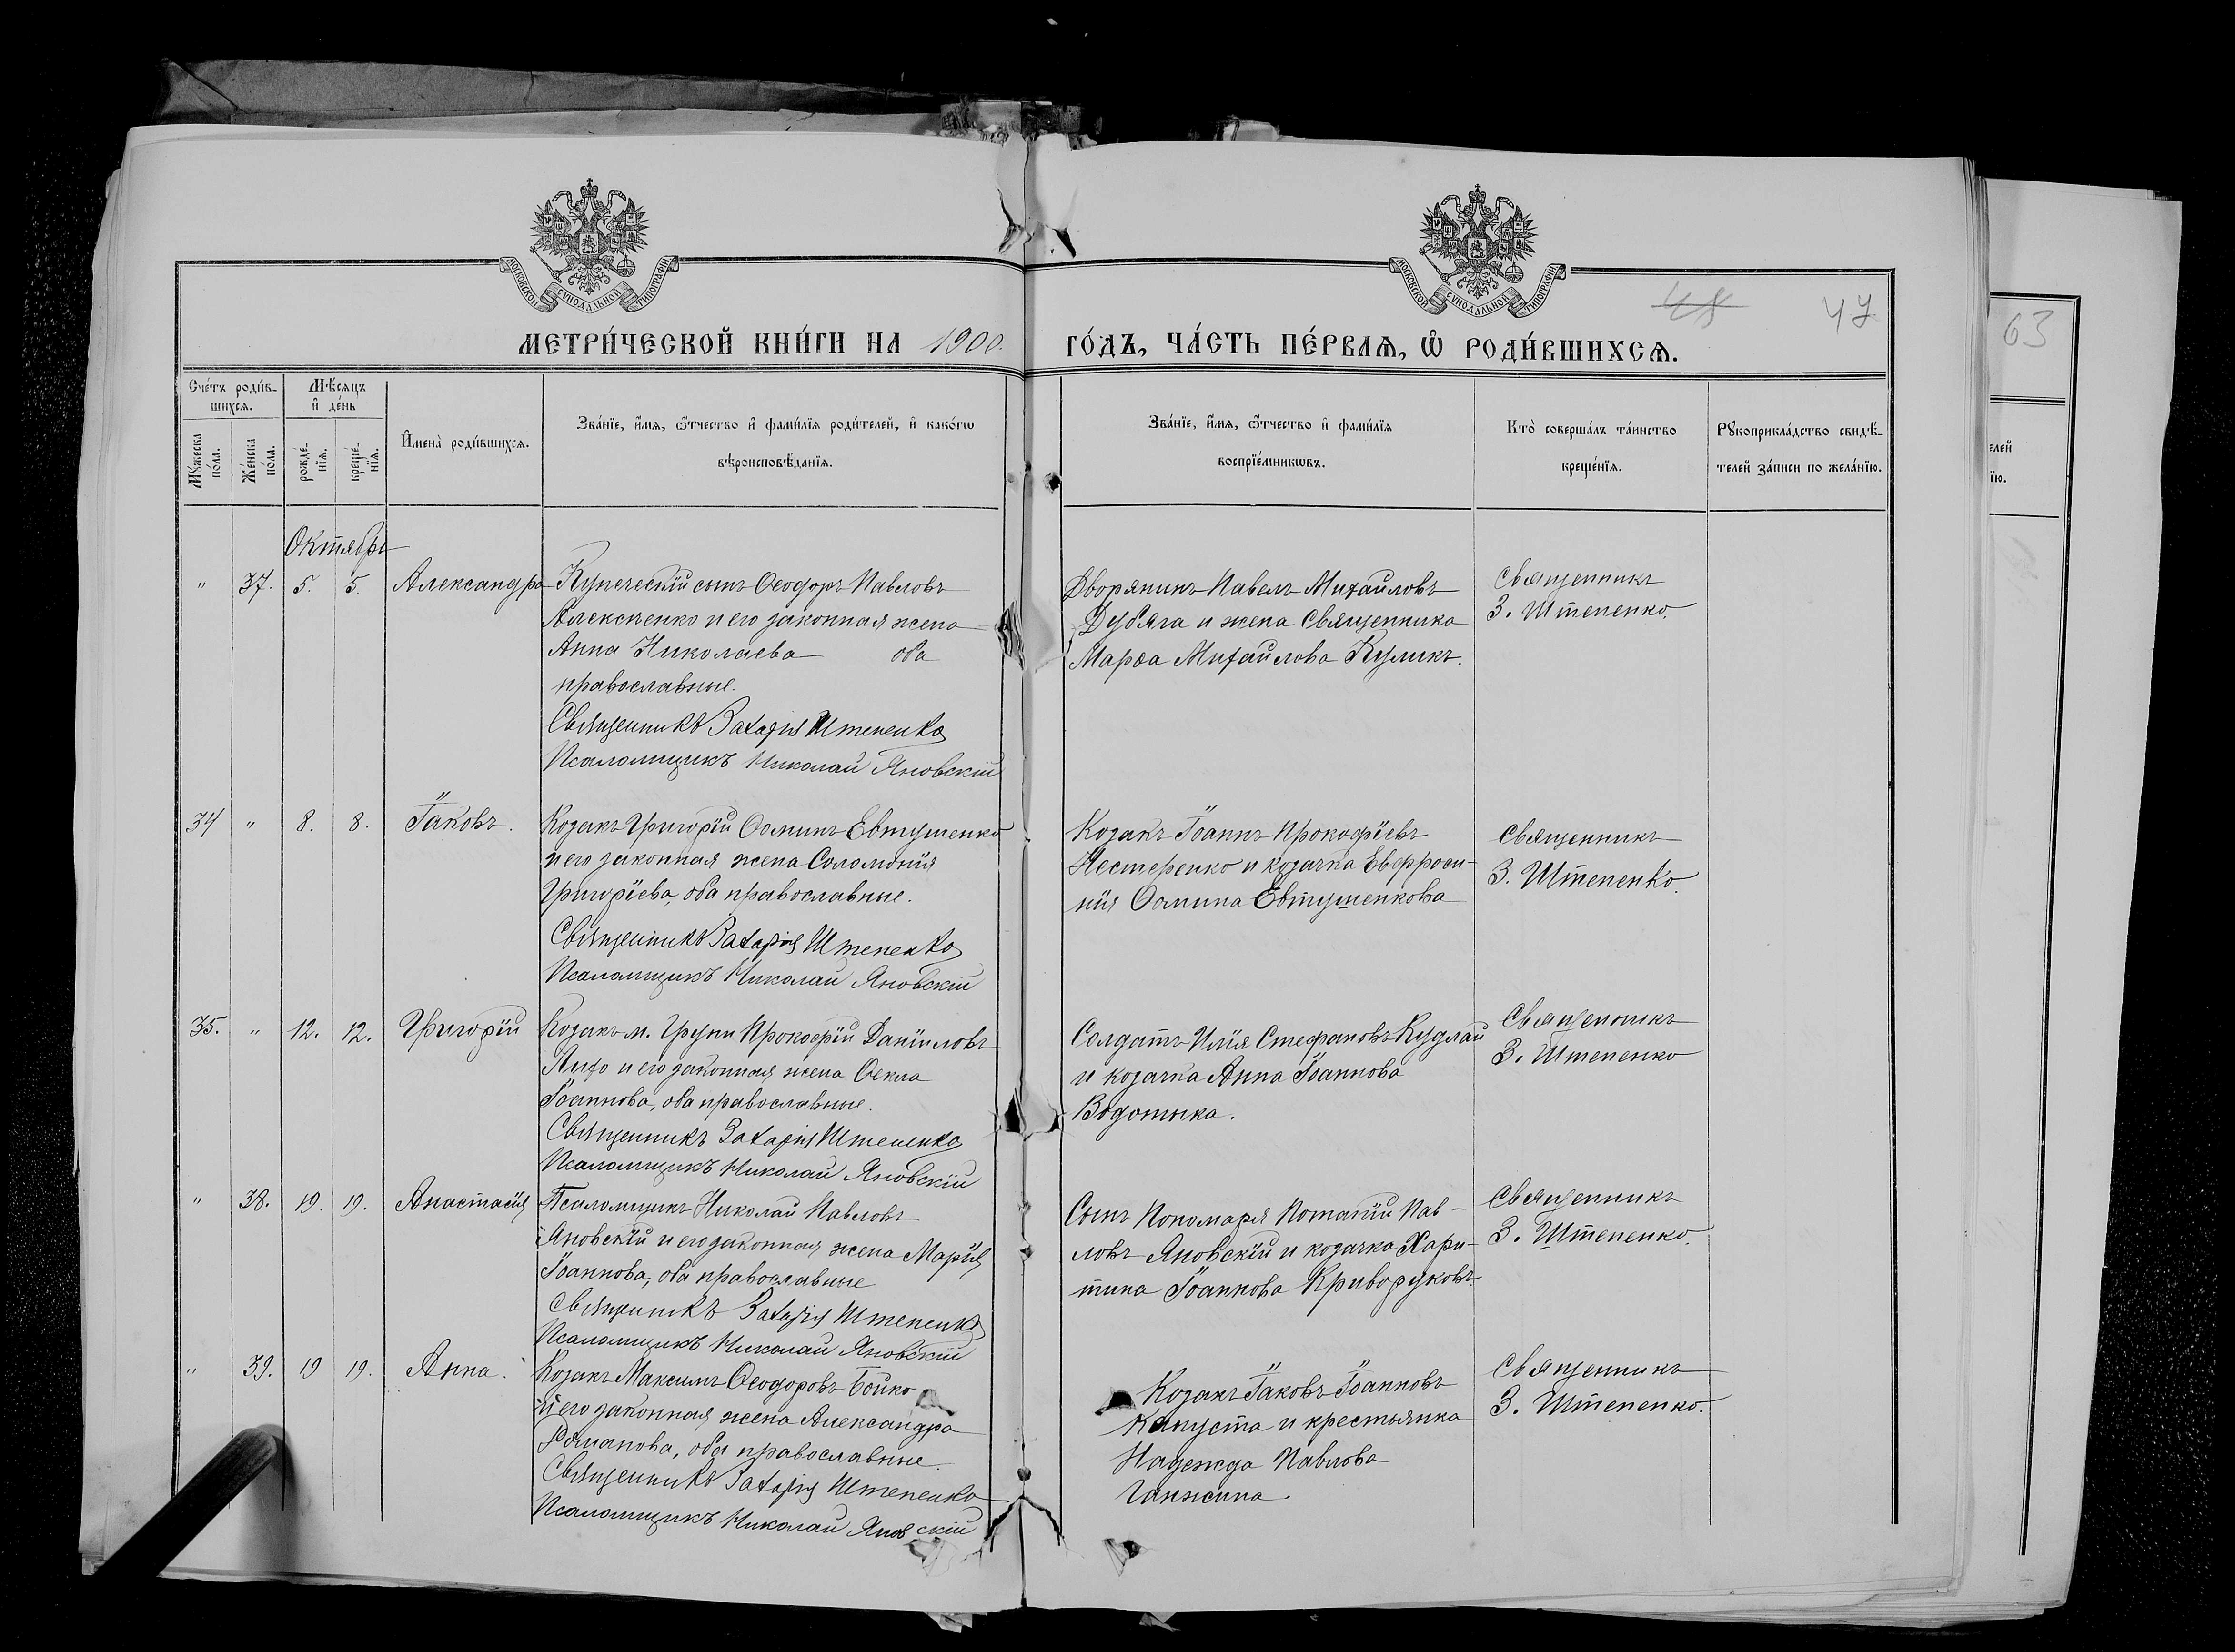 МОСКОВСКОЙ СѴНОДАЛЬНОЙ ТИПОГРАФІИ
МОСКОВСКОЙ СѴНОДАЛЬНОЙ ТИПОГРАФІИ
47
63
МЕТРИ́ЧЕСКОЙ КНИ́ГИ НА 1900. ГО́ДЪ, ЧА́СТЬ ПЕ́РВАѦ, Ѡ РОДИ́ВШИХСѦ.
Сче́тъ роди́в-
шихсѧ.
Мѣ́сяцъ
и де́нь
Мꙋжеска
по́ла.
Же́нска
по́ла.
рожде́-
нїѧ.
креще́-
нїѧ.
Имена̀ роди́вшихсѧ.
Зва́нїе, и́мѧ, ѻ́тчество и фами́лїѧ роди́телей, и како́гѡ
вѣроисповѣ́данїѧ.
Зва́нїе, и́мѧ, ѻ́тчество и фами́лїѧ
воспрїе́мникѡвъ.
Кто̀ соверша́лъ та́инство
креще́нїѧ.
Рꙋкоприкла́дство свидѣ́-
телей за́писи по жела́нїю.
елей
їю.
Октябрь
" 37. 5. 5. Александра
Купеческій сынъ Ѳеодоръ Павловъ
Алексѣенко и его законная жена
Анна Николаева оба
православные.
Священникъ Захарія Штепенко
Псаломщикъ Николай Яновскій
Дворянинъ Павелъ Михайловъ
Дубяга и жена Священника
Марѳа Михайлова Куликъ.
Священникъ
З. Штепенко.
34 " 8. 8. Іаковъ.
Козакъ Григорій Ѳоминъ Евтушенко
и его законная жена Соломонія
Григоріева, оба православные.
Священникъ Захарія Штепенко
Псаломщикъ Николай Яновскій
Козакъ Іоаннъ Прокофіевъ
Нестеренко и козачка Евфроси-
нія Ѳомина Евтушенкова
Священникъ
З. Штепенко.
35. " 12. 12. Григорій
Козакъ м. Груни Прокофій Даніиловъ
и его законная жена Ѳекла
Іоаннова, оба православные.
Священникъ Захарія Штепенко
Псаломщикъ Николай Яновскій
Солдатъ Илія Стефановъ Кудлай
и козачка Анна Іоаннова
Водотыка.
Священникъ
З. Штепенко
" 38. 19. 19. Анастасія
Псаломщикъ Николай Павловъ
Яновскій и его законная жена Марія
Іоаннова, оба православные
Священникъ Захарія Штепенко
Псаломщикъ Николай Яновскій
Сынъ Пономаря Потапій Пав-
ловъ Яновскій и козачка Хари-
тина Іоаннова Криворуковъ.
Священникъ
З. Штепенко.
" 39. 19 19. Анна.
Козакъ Максимъ Ѳеодоровъ Бойко
и его законная жена Александра
Романова, оба православные.
Священникъ Захарія Штепенко
Псаломщикъ Николай Яновскій
Козакъ Іаковъ Іоанновъ
Капуста и крестьянка
Надежда Павлова
Ганжина.
Священникъ
З. Штепенко.